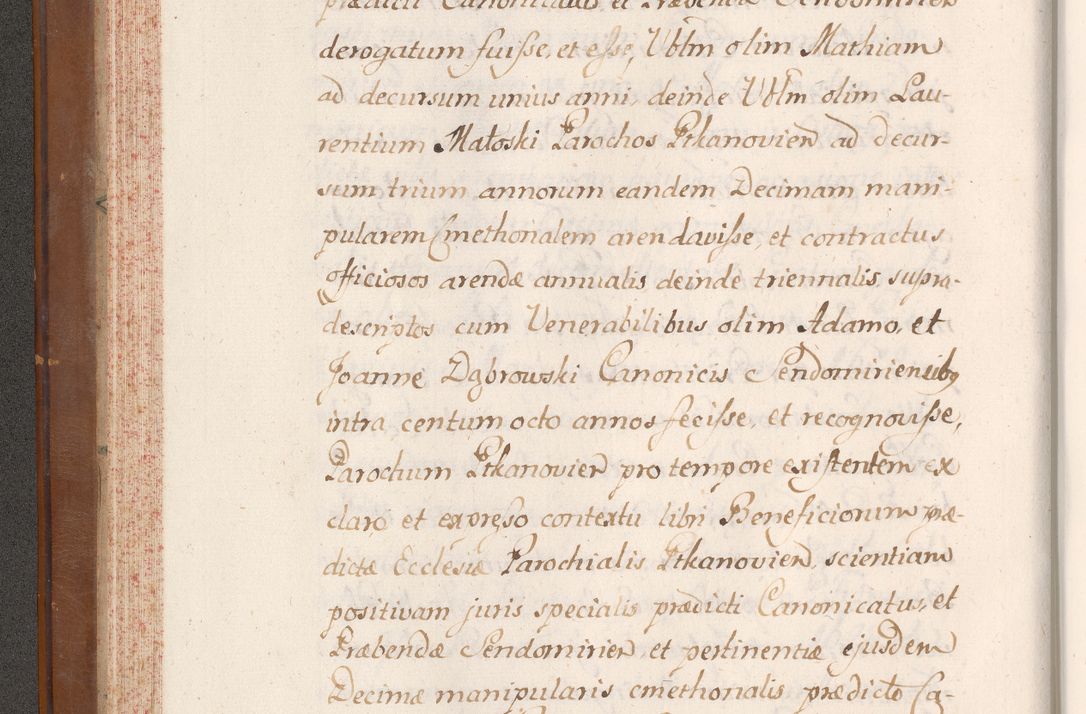 prædicti Canonicatus et Præbendæ Sendomirien
derogatum fuisse, et esse, Vblm olim Mathiam
ad decursum unius anni, deinde Vblm olim Lau-
rentium Małoski Parochos Ptkanovien ad decur-
sum trium annorum eandem Decimam mani-
pularem Cmethonalem arendavisse, et contractus
officiosos arendæ annualis deinde triennalis supra-
descriptos cum Venerabilibus olim Adamo, et
Joanne Dąbrowski Canonicis Sendomiriensibq
intra centum octo annos fecisse, et recognovisse,
Parochum Ptkanovien pro tempore existentem ex
claro et expresso contextu libri Beneficiorum præ-
dictæ Ecclesiæ Parochialis Ptkanovien, scientiam
positivam juris specialis prædicti Canonicatus, et
Præbendæ Sendomirien, et pertinentiæ ejusdem
Decimæ manipularis cmethonalis prædicto Ca-